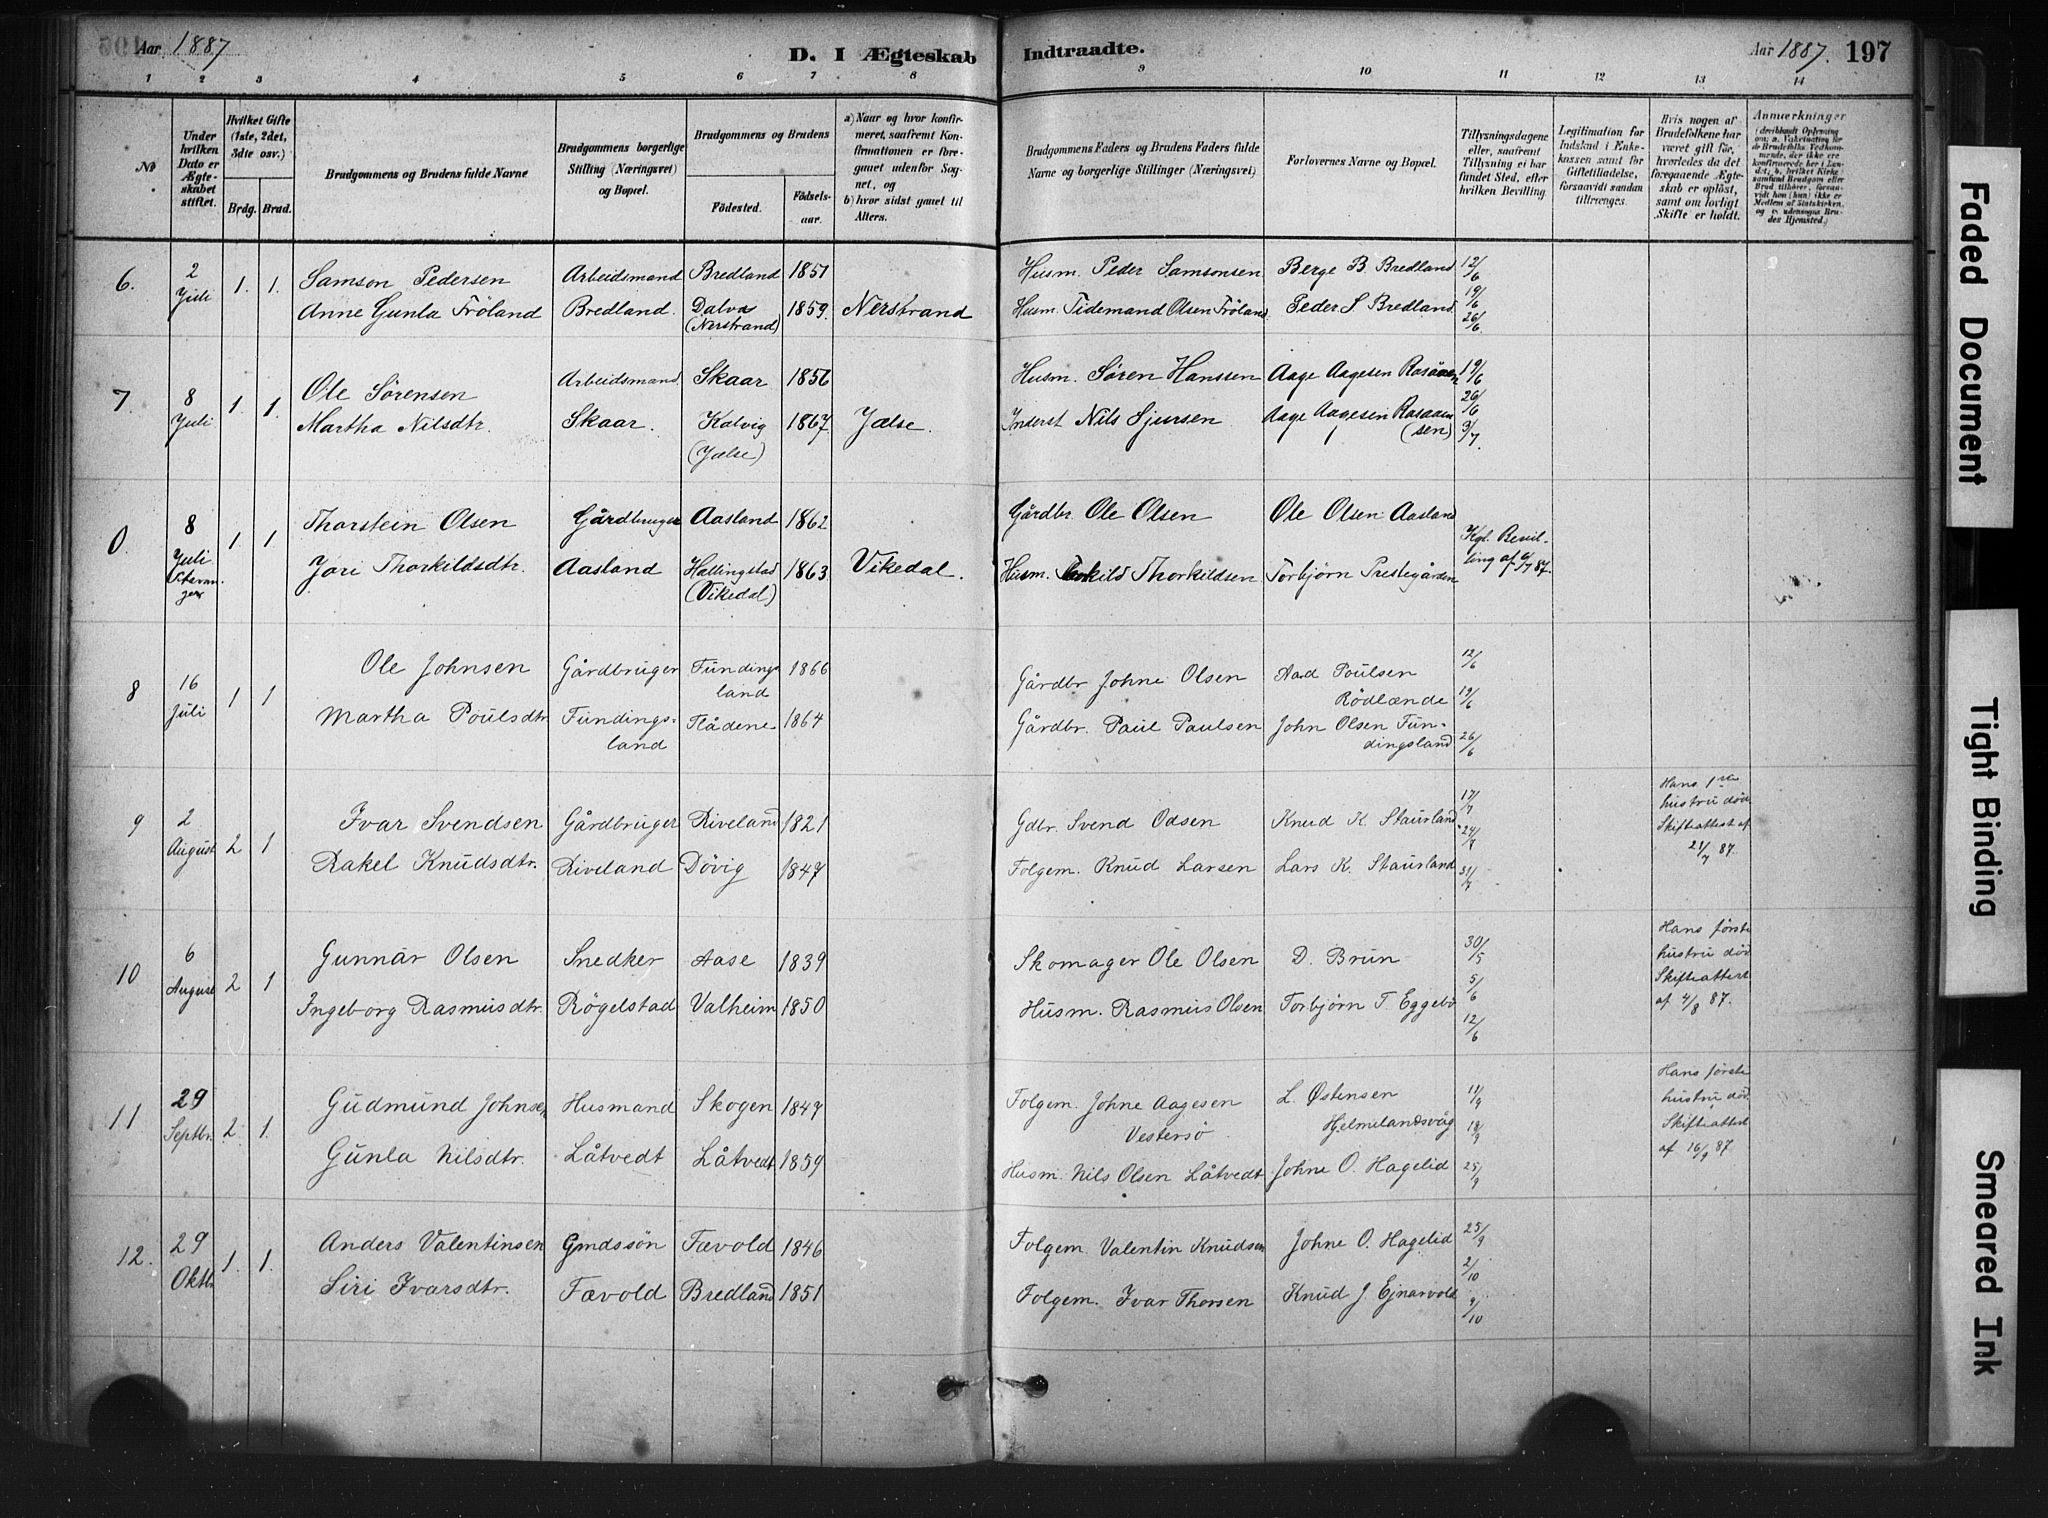 Aar 1887
D. I Ægteskab Indtraadte.
Aar 1887. 197
1 2 3 4 5 6 7 8 9 10 11 12 13 14
No
Under hvilken Dato er Ægteskabet stiftet.
Hvilket Gifte (1ste, 2det, 3die osv.)
Brdg. Brud.
Brudgommens og Brudens fulde Navne
Brudgommens borgerlige Stilling (Næringsvei) og Bopæl.
Brudgommens og Brudens
Fødested. Fødselsaar.
a) Naar og hvor konfirmeret, saafremt Konfirmationen er foregaaet udenfor Sognet, og
b) hvor sidst gaaet til Alters.
Brudgommens Faders og Brudens Faders fulde Navne og borgerlige Stillinger (Næringsvei)
Forlovernes Navne og Bopæl.
Tillysningsdagene eller, saafremt Tillysning ei har fundet Sted, efter hvilken Bevilling.
Legitimation for Indskud i Enkekassen samt for Giftetilladelse, forsaavidt saadan tiltrænges.
Hvis nogen af Brudefolkene har været gift før, hvorledes da det foregaaende Ægteskab er opløst, samt om lovligt Skifte er holdt.
Anmærkninger
6. 2 Juli 1. 1. Samson Pedersen Arbeidsmand Bredland 1851 Husm. Peder Samsonsen Berge B. Bredland 12/6
Anne Gunla Fröland Bredland. Dalva (Nerstrand) 1859. Nerstrand Husm. Tidemand Olsen Fröland. Peder S Bredland. 19/6 26/6
7. 8 Juli 1. 1. Ole Sørensen Arbeidsmand Skaar 1856 Husm. Søren Hanssen Aage Aagesen 19/6
Martha Nilsdtr. Skaar. Kalvig (Jælse) 1867. Jælse. Inderst Nils Sjursen Aage Aagesen (sen) 26/6 3/7
0. 8 Juli 1. 1 Thorstein Olsen Gårdbruger Aasland 1862 Gårdbr. Ole Olsen Ole Olsen Aasland Kgl. Bevilling af 6/7 87.
Jori Thorkildsdtr. Aasland Hallingstad (Vikedal) 1863 Vikedal. Husm. Thorkildsen Torbjørn Prestegården
8 16 Juli 1 1 Ole Johnsen Gårdbruger Fundingsland 1866 Gårdbr Johne Olsen Aad Poulsen Rödlænde 12/6
Martha Poulsdtr Fundingsland Flådene 1864 Gårdbr. Paul Paulsen John Olsen Fundingsland 19/6 26/6
9 2 August 2 1 Ivar Svendsen Gårdbruger Riveland 1821 Gdbr. Svend Odsen Knud K. Staurland 17/7 Hans 1ste hustru död. Skifteattest af 21/7 87.
Rakel Knudsdtr. Riveland Dövig 1847 Folgem. Knud Larsen Lars K. Staurland 24/7 31/7
10 6 August 2 1 Gunnar Olsen Snedker Aase 1839 Skomager Ole Olsen D. Brun 30/5 Hans første hustru död Skifteattest af 4/8 87.
Ingeborg Rasmusdtr. Rögelstad Valheim 1850 Husm. Rasmus Olsen Torbjørn T. Eggebö 5/6 12/6
11 29 Septbr. 2. 1. Gudmund Johnsen Husmand Skogen 1847 Folgem. Johne Aagesen Vestersö L. Østensen Hjelmelandsvåg 11/9 Hans første hustru död. Skifteattest af 16/9 87.
Gunla Nilsdtr. Låtvedt Låtvedt 1859 Husm. Nils Olsen Låtvedt Johne O. Hagelid 18/9 25/9
12. 29 Oktbr 1. 1. Anders Valentinsen Gmdssön Fævold 1846 Folgem. Valentin Knudsen Johne O. Hagelid 25/9
Siri Ivarsdtr. Fævold Bredland 1851 Folgem. Ivar Thorsen Knud J Ejnarvold 2/10 9/10
Faded Document
Tight Binding
Smeared Ink